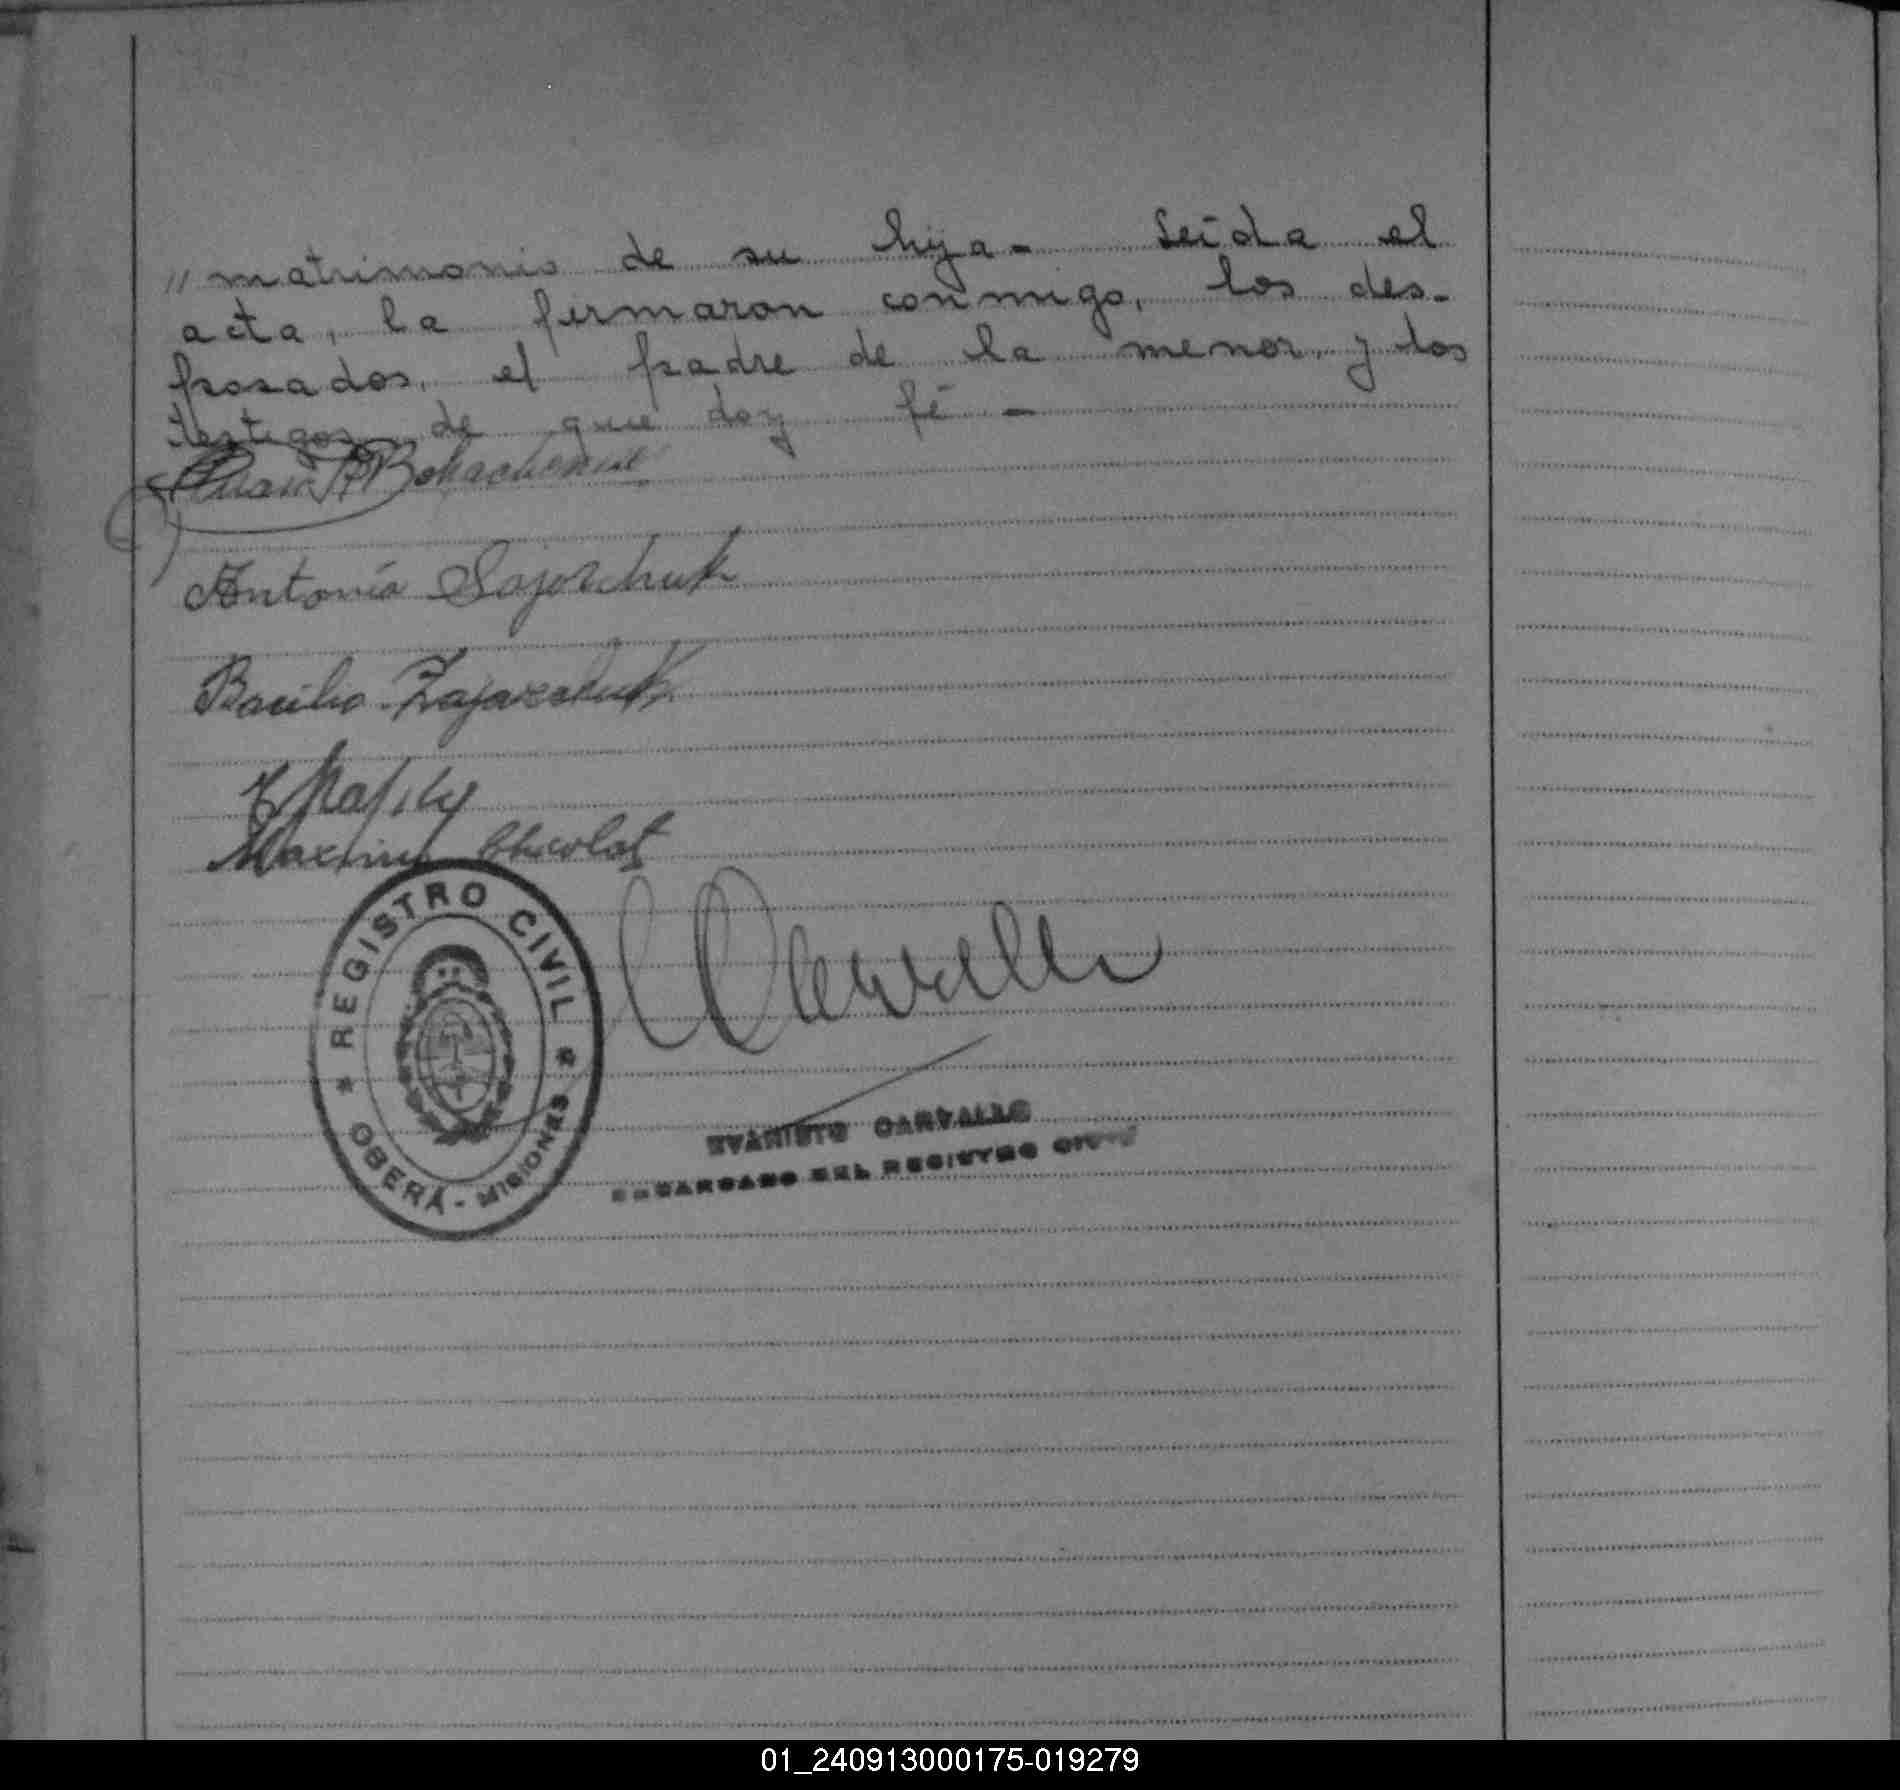 " matrimonio de su hija - Leída el
acta, la firmaron conmigo, los des-
posados, el padre de la menor y los
testigos de que doy fé -
Juan
Antonia Sajorchuk
Basilio Zajarczhuk
Maximo
REGISTRO CIVIL
OBERÁ - MISIONES
EVARISTO CARVALLO
ENCARGADO DEL REGISTRO CIVIL
01_240913000175-019279